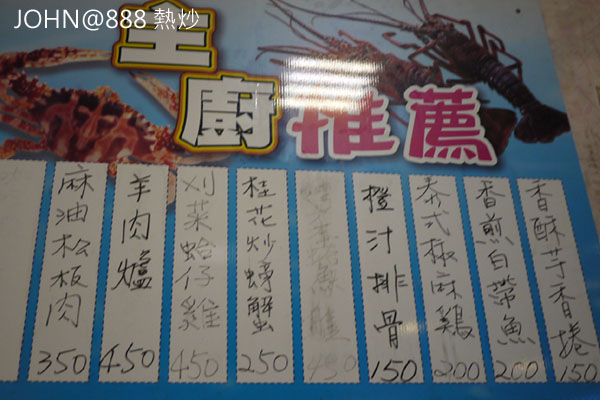 JOHN@888 熱炒
主廚推薦
香酥芋香捲 150
香煎白帶魚 200
泰式椒麻鷄 200
橙汁排骨 150
450
桂花炒螃蟹 250
刈菜蛤仔雞 450
羊肉爐 450
麻油松板肉 350